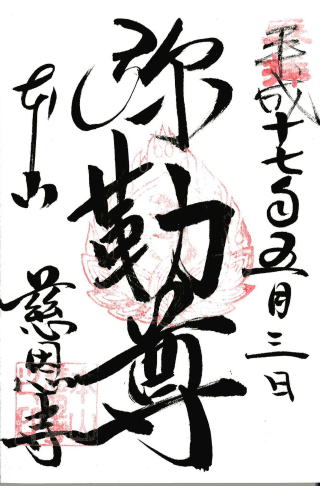 平成十七年五月三日
弥勒尊
本山
慈恩寺